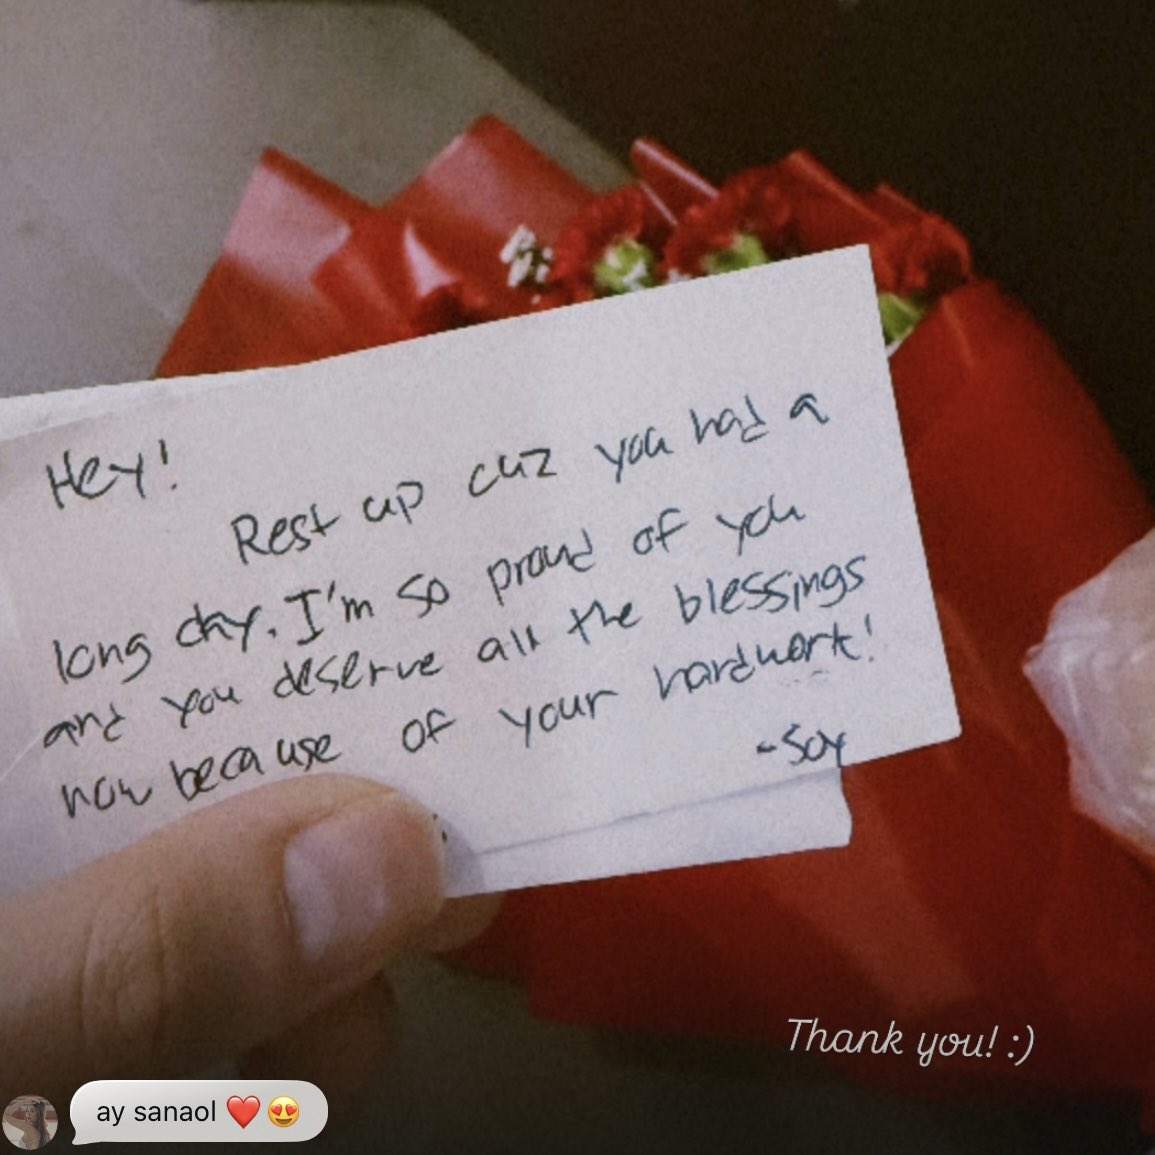 Hey!
Rest up cuz you had a
long day. I'm so proud of you
and you deserve all the blessings
now because of your hardwork!
-Soy
Thank you! :)
ay sanaol ❤️😍